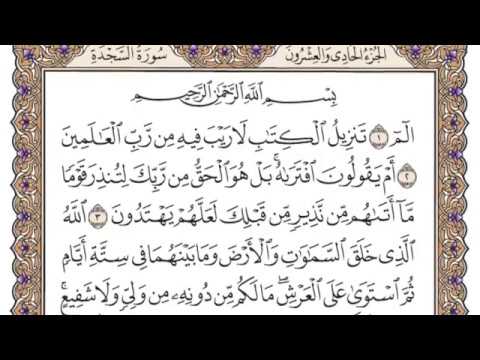 الجُزْءُ الحَادِي وَالعِشْرُونَ سُورَةُ السَّجْدَةِ
بِسْمِ اللَّهِ الرَّحْمَٰنِ الرَّحِيمِ
الٓمٓ ١ تَنزِيلُ ٱلْكِتَٰبِ لَا رَيْبَ فِيهِ مِن رَّبِّ ٱلْعَٰلَمِينَ
٢ أَمْ يَقُولُونَ ٱفْتَرَىٰهُ ۚ بَلْ هُوَ ٱلْحَقُّ مِن رَّبِّكَ لِتُنذِرَ قَوْمًا
مَّآ أَتَىٰهُم مِّن نَّذِيرٍ مِّن قَبْلِكَ لَعَلَّهُمْ يَهْتَدُونَ ٣ ٱللَّهُ
ٱلَّذِى خَلَقَ ٱلسَّمَٰوَٰتِ وَٱلْأَرْضَ وَمَا بَيْنَهُمَا فِى سِتَّةِ أَيَّامٍ
ثُمَّ ٱسْتَوَىٰ عَلَى ٱلْعَرْشِ ۖ مَا لَكُم مِّن دُونِهِۦ مِن وَلِىٍّ وَلَا شَفِيعٍ ۚ